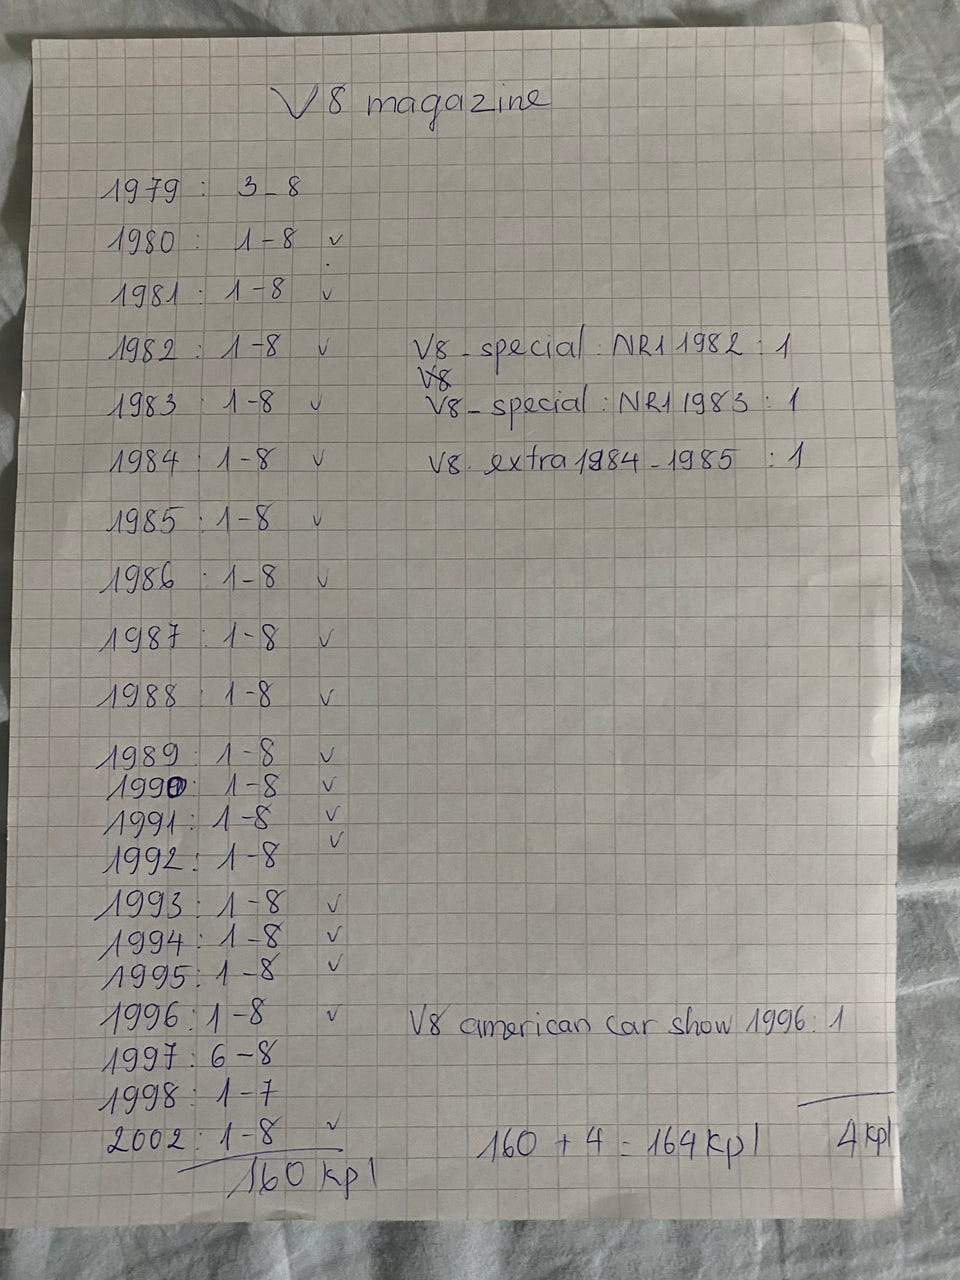 V8 magazine
1979 : 3-8
1980 : 1-8 ✓
1981 : 1-8 ✓
1982 : 1-8 ✓ V8-special : NR1 1982 : 1
V8
1983 : 1-8 ✓ V8-special : NR1 1983 : 1
1984 : 1-8 ✓ V8. extra 1984-1985 : 1
1985 : 1-8 ✓
1986 : 1-8 ✓
1987 : 1-8 ✓
1988 : 1-8 ✓
1989 : 1-8 ✓
1990 : 1-8 ✓
1991 : 1-8 ✓
1992 : 1-8 ✓
1993 : 1-8 ✓
1994 : 1-8 ✓
1995 : 1-8 ✓
1996 : 1-8 ✓ V8 american car show 1996 : 1
1997 : 6-8
1998 : 1-7
2002 : 1-8 ✓
160 kpl 160 + 4 = 164 kpl 4 kpl